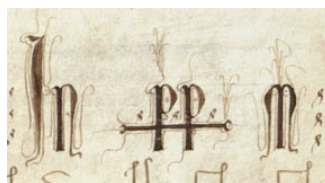 In pp m